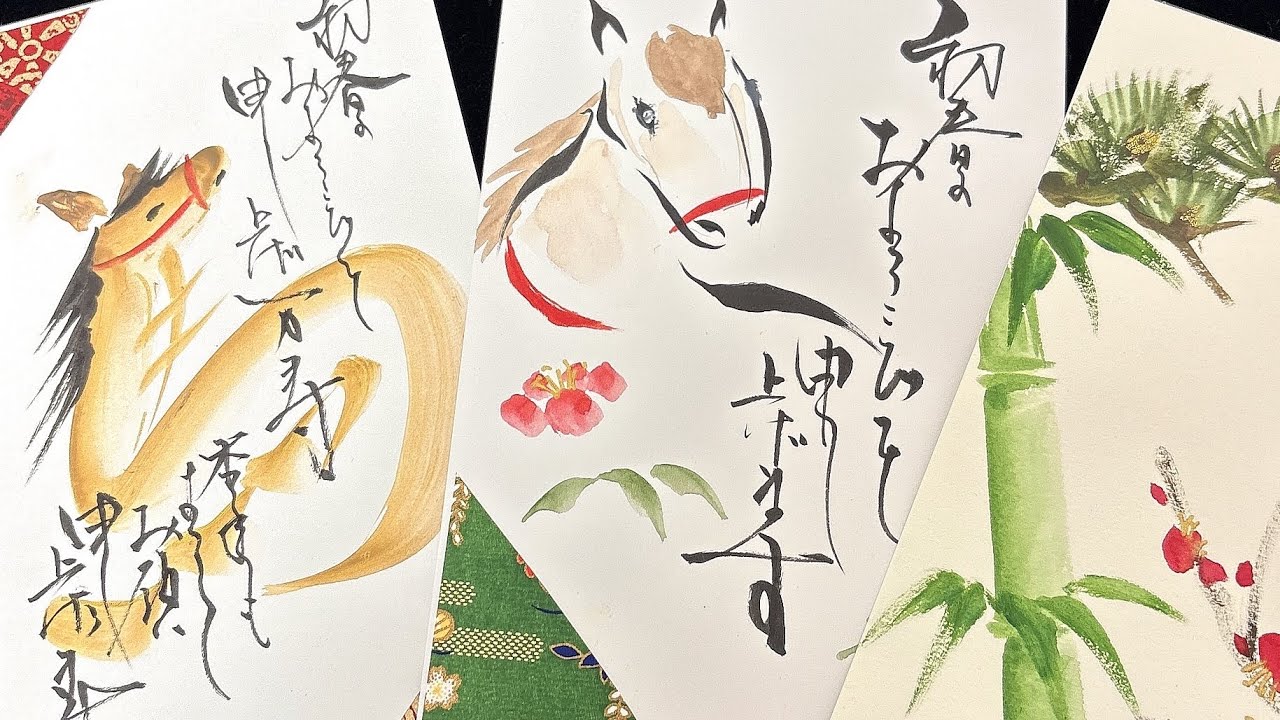 初春の
およろこびを
申し
上げま寿
初春の
およろこびを
申し
上げ万寿
本年も
よろしく
お願い
申し
上げま寿